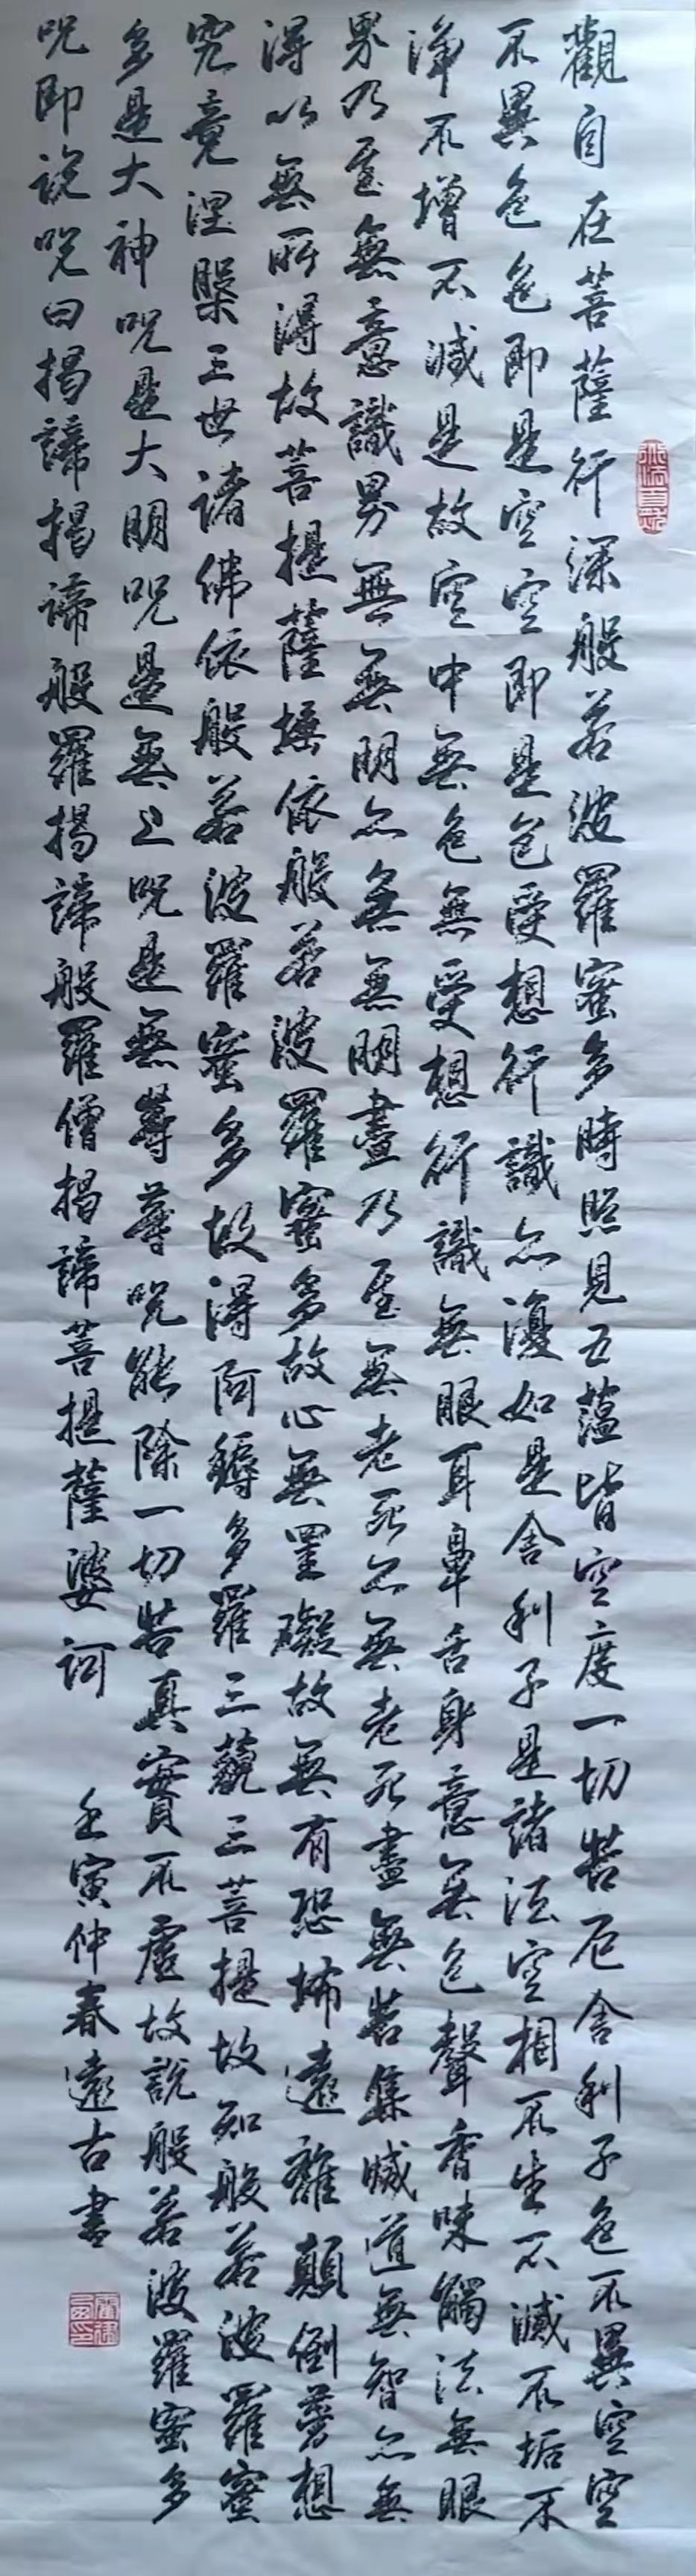 觀自在菩薩行深般若波羅蜜多時照見五蘊皆空度一切苦厄舍利子色不異空空
不異色色即是空空即是色受想行識亦復如是舍利子是諸法空相不生不滅不垢不
淨不增不減是故空中無色無受想行識無眼耳鼻舌身意無色聲香味觸法無眼
界乃至無意識界無無明亦無無明盡乃至無老死亦無老死盡無苦集滅道無智亦無
得以無所得故菩提薩埵依般若波羅蜜多故心無罣礙故無有恐怖遠離顛倒夢想
究竟涅槃三世諸佛依般若波羅蜜多故得阿耨多羅三藐三菩提故知般若波羅蜜
多是大神呪是大明呪是無上呪是無等等呪能除一切苦真實不虛故說般若波羅蜜多
呪即說呪曰揭諦揭諦般羅揭諦般羅僧揭諦菩提薩婆訶
壬寅仲春遠古書